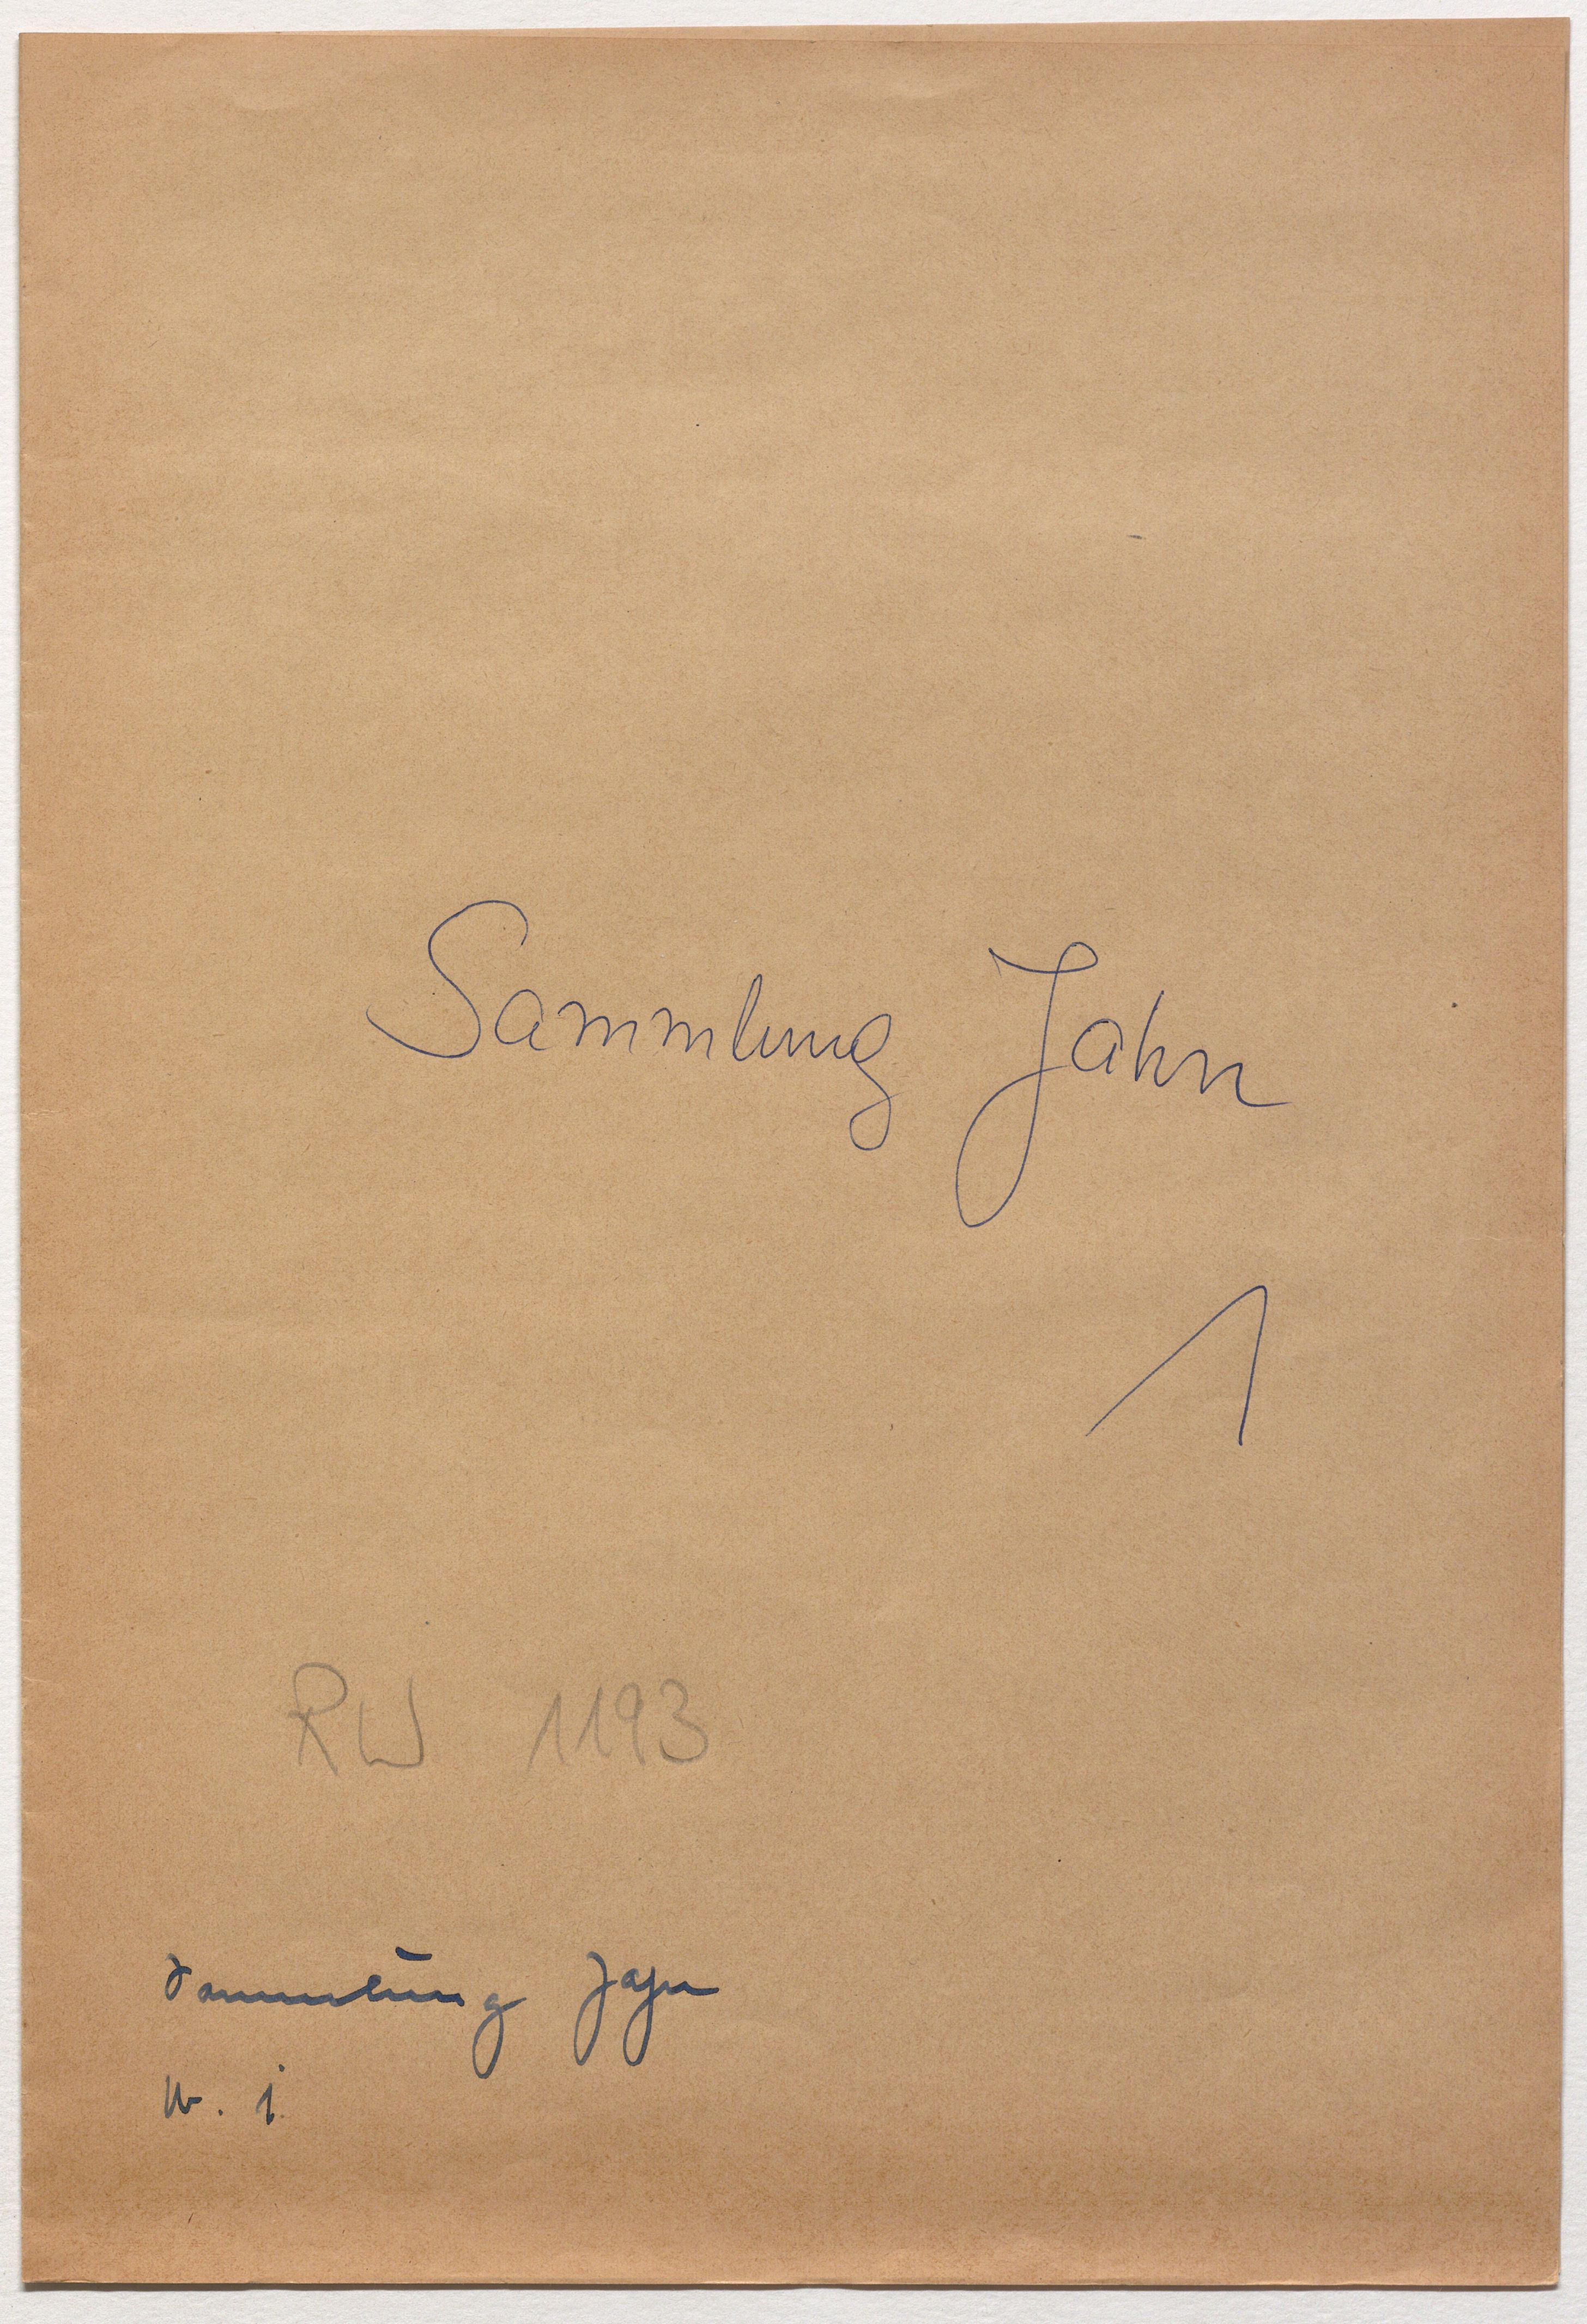 Sammlung Jahn
1
RW 1193
Sammlung Jahn
N. 1